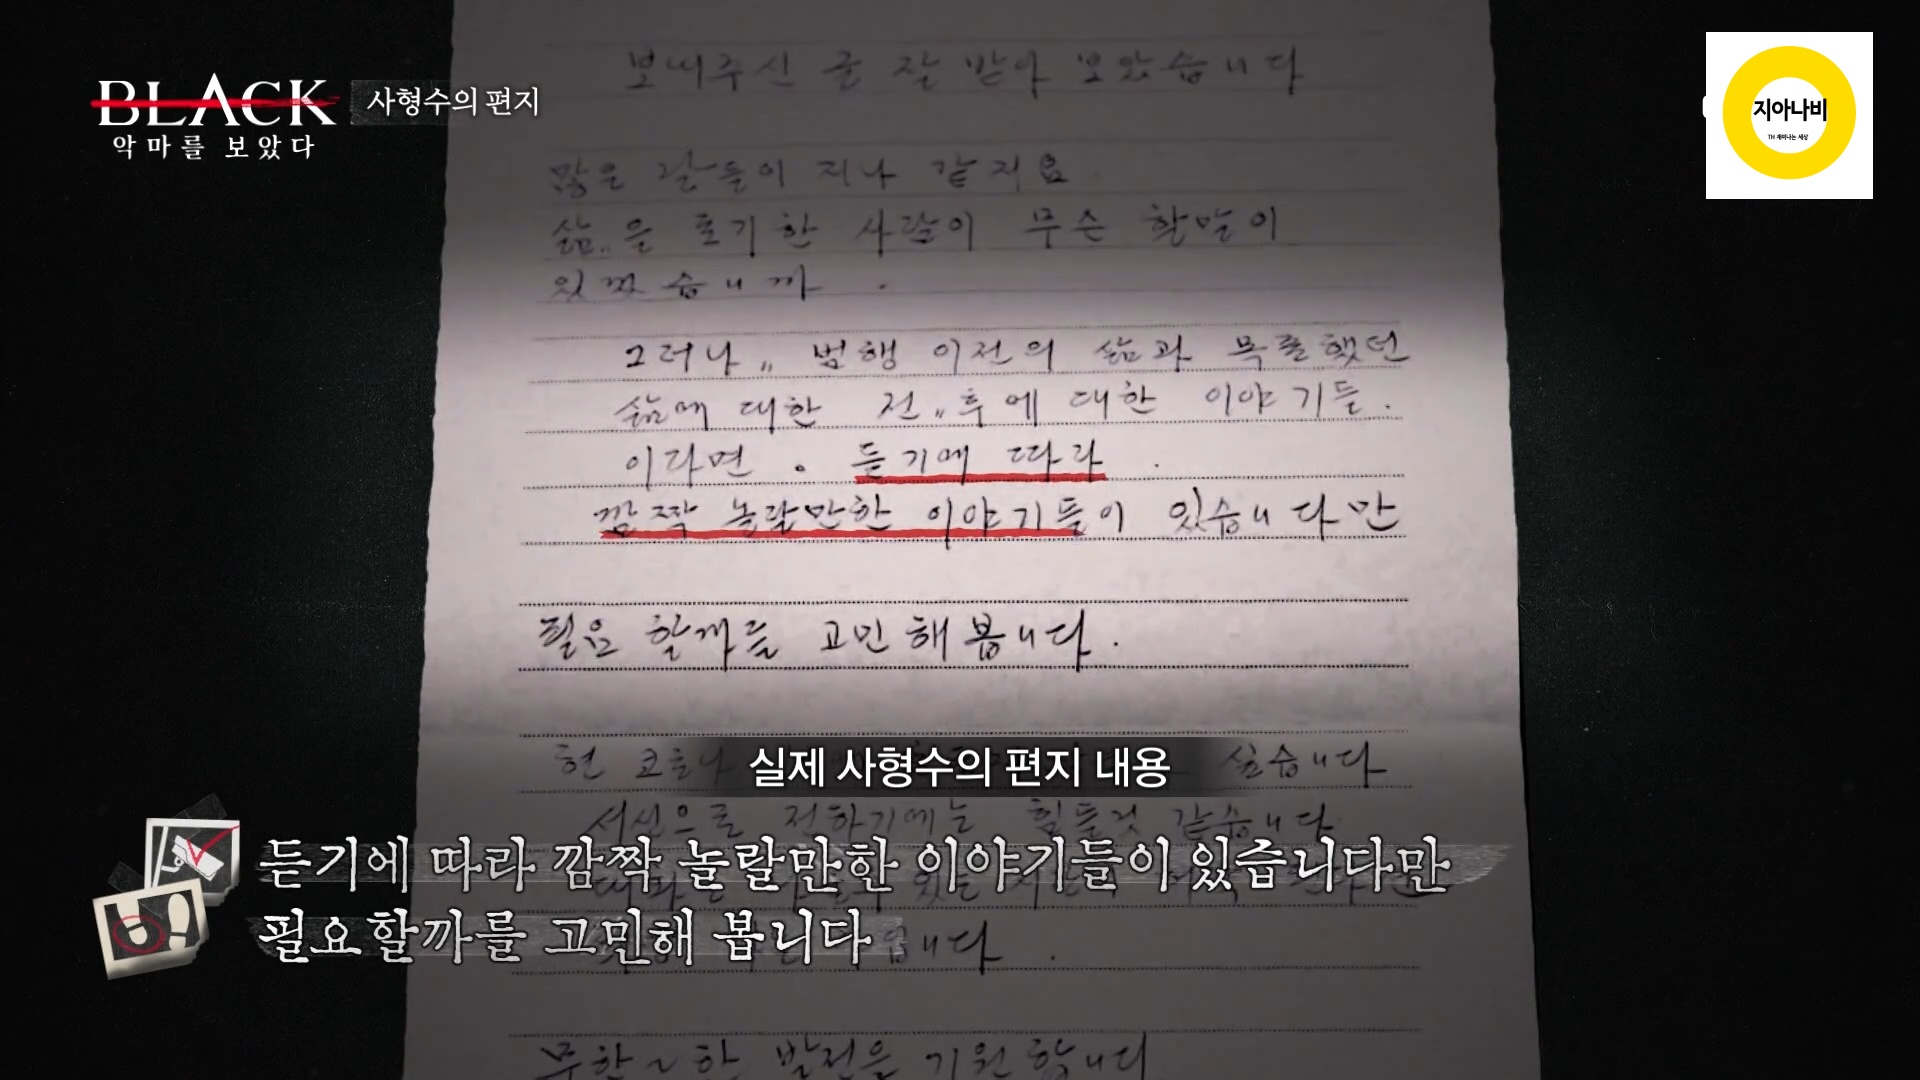 BLACK
악마를 보았다
사형수의 편지
지아나비
TH 재미나는 세상
보내주신 글 잘 받아 보았습니다
많은 날들이 지나 갔지요
삶„을 포기한 사람이 무슨 할말이
있겠습니까 .
그러나„ 범행 이전의 삶과 목를했던
삶에 대한 전„후에 대한 이야기들.
이라면 . 듣기에 따라 .
깜짝 놀랄만한 이야기들이 있습니다만
필요 할까를 고민해봅니다.
현 코로나 싶습니다
실제 사형수의 편지 내용
서신으로 전하기에는 힘들것 같습니다
듣기에 따라 깜짝 놀랄만한 이야기들이 있습니다만
필요할까를 고민해 봅니다
무한~한 발전을 기원합니다